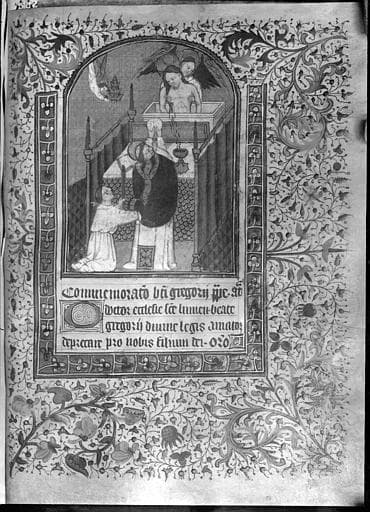 Commemoratō bīi gregorij ppe. atō
Doctor ecclesie sce lumen beate
gregorij divine legis amator
deprecare pro nobis filium dei. Oro